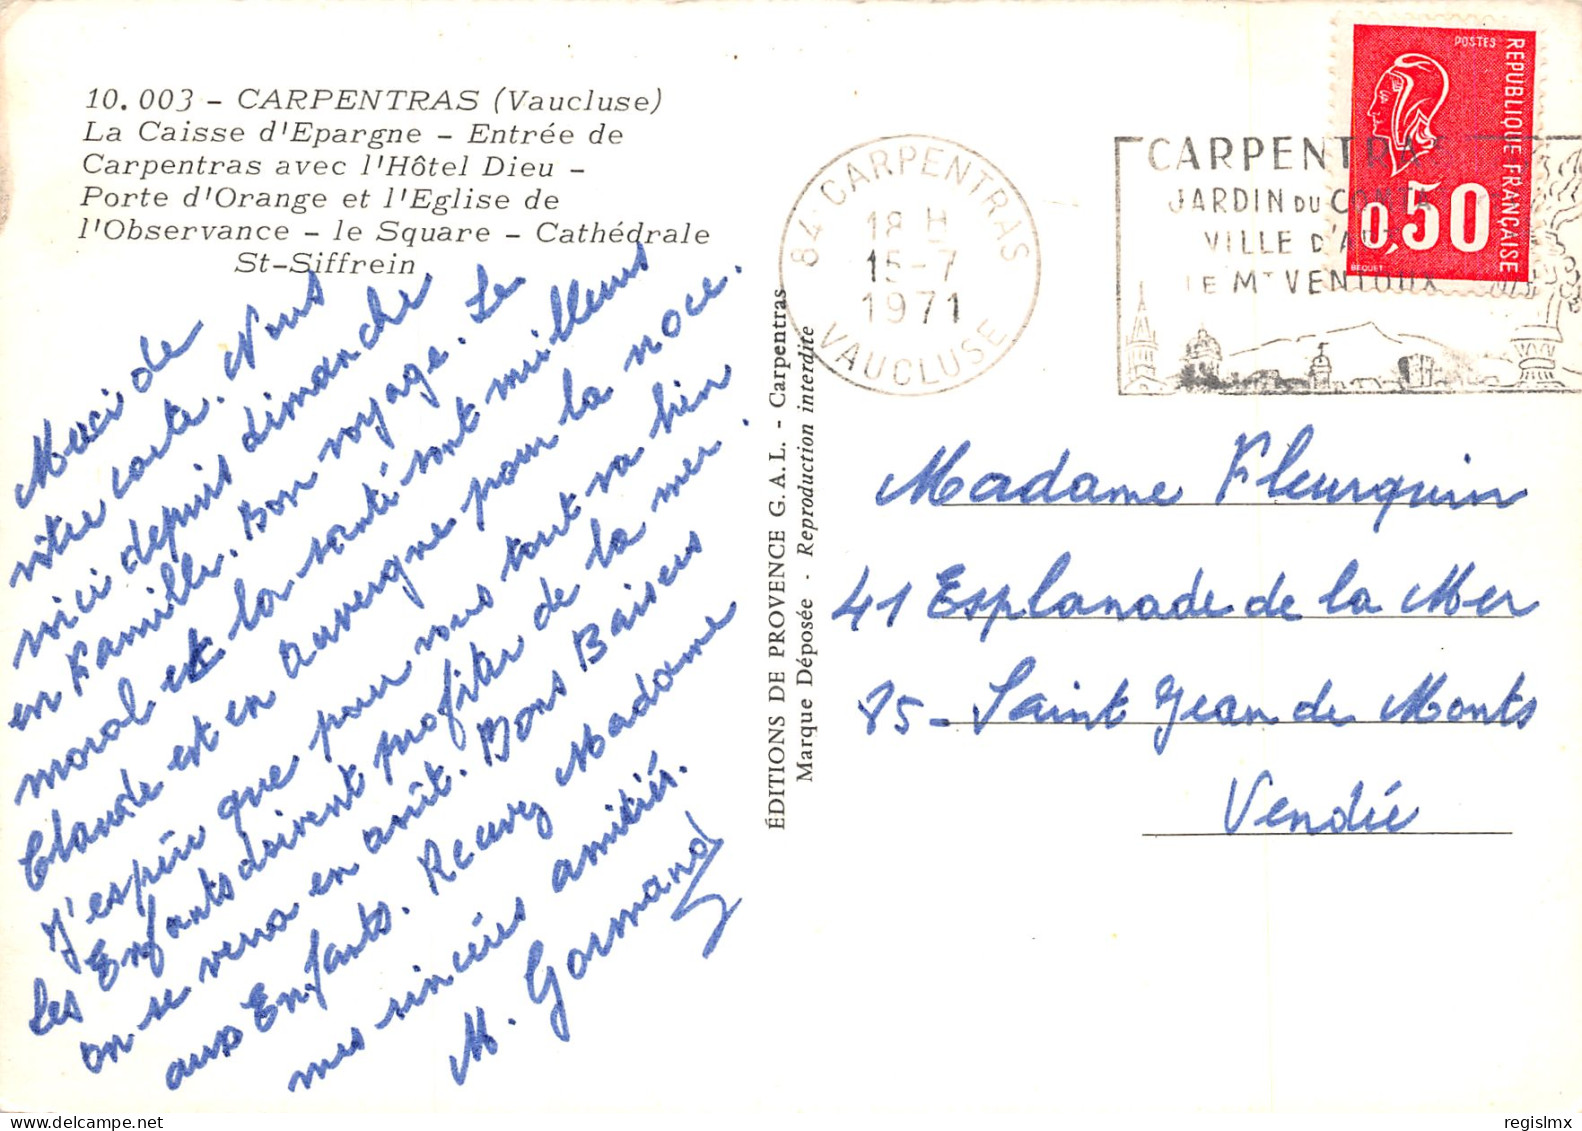 10.003 - CARPENTRAS (Vaucluse)
La Caisse d'Epargne - Entrée de
Carpentras avec l'Hôtel Dieu -
Porte d'Orange et l'Eglise de
l'Observance - le Square - Cathédrale
St-Siffrein
Merci de
vôtre carte. Nous
voici depuis dimanche
en Famille. Bon voyage. Le
moral et la santé sont meilleurs
Claude est en Auvergne pour la noce.
J'espère que pour vous tout va bien
les Enfants doivent profiter de la mer.
on se verra en août. Bons Baisers
aux Enfants. Recevez Madame
mes sincères amitiés.
M. Gormand
ÉDITIONS DE PROVENCE G.A.L. - Carpentras
Marque Déposée - Reproduction interdite
84 - CARPENTRAS
18 H
15-7
1971
VAUCLUSE
CARPENTRAS
JARDIN DU COMTAT
VILLE D'ART
LE MT VENTOUX
POSTES
REPUBLIQUE FRANÇAISE
0,50
BEQUET
Madame Fleurquin
41 Esplanade de la Mer
85 - Saint Jean de Monts
Vendée
registmx